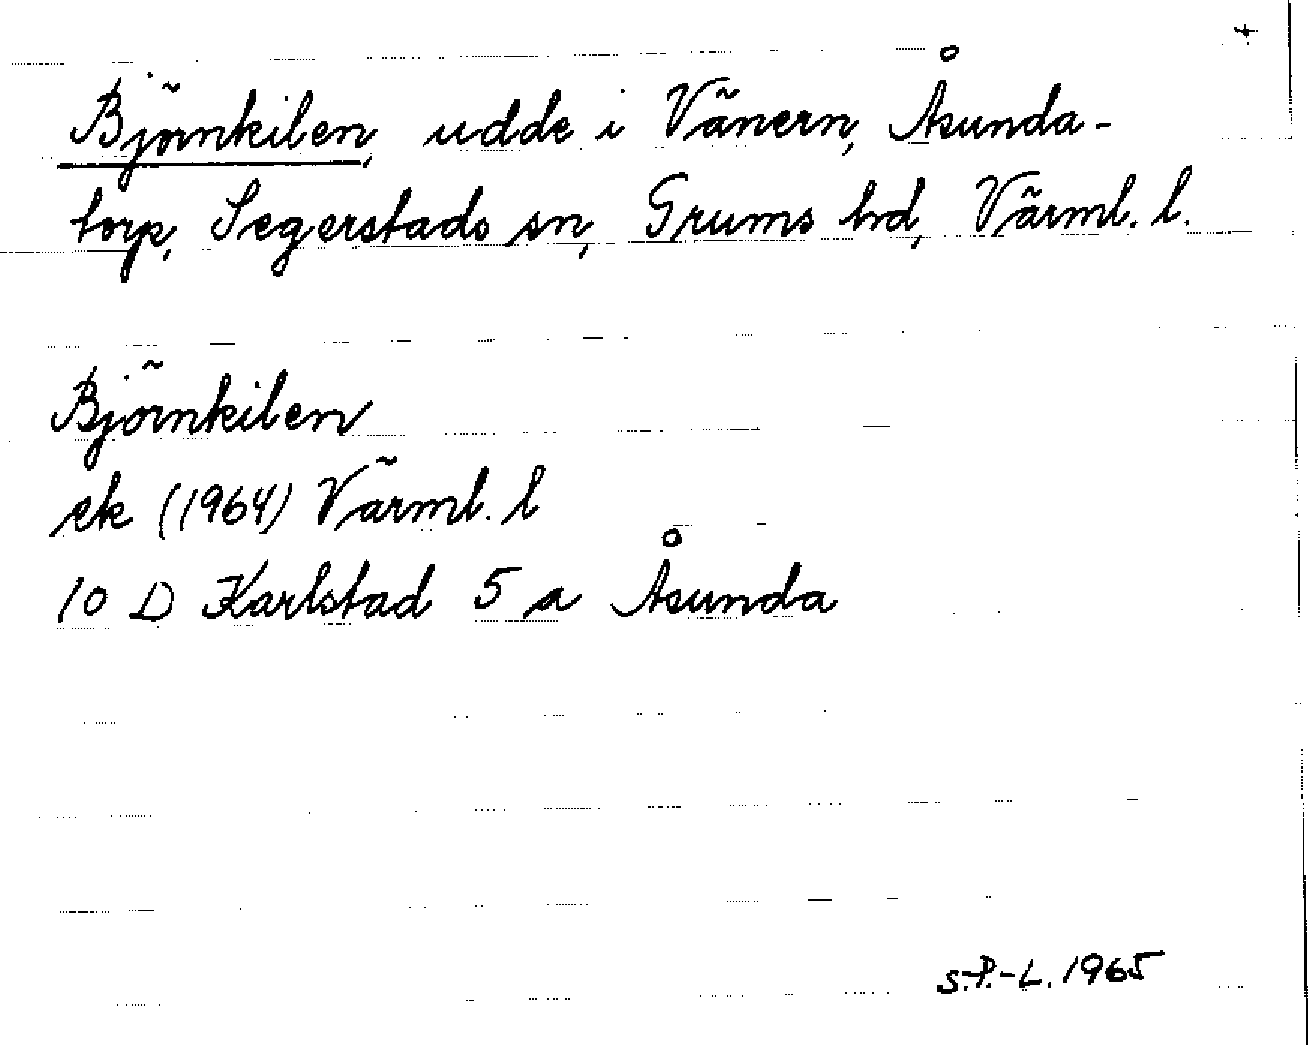 +
Björnkilen, udde i Vänern, Åsunda-
torp, Segerstads sn, Grums hd, Värml. l.
Björnkilen
ek (1964) Värml. l
10 D Karlstad 5 a Åsunda
S.P.-L. 1965